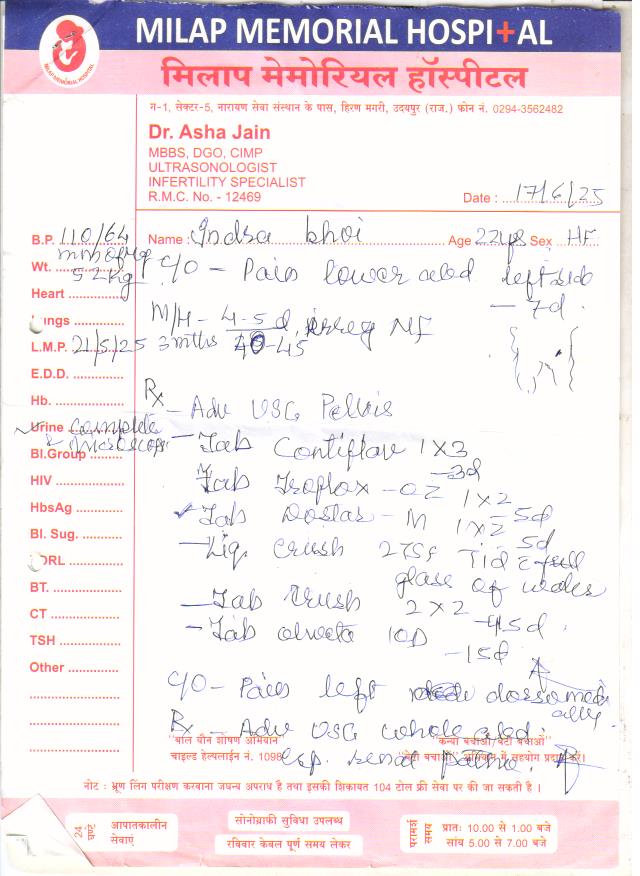 MILAP MEMORIAL HOSPITAL
MILAP MEMORIAL HOSPITAL
मिलाप मेमोरियल हॉस्पीटल
ग-1, सेक्टर-5, नारायण सेवा संस्थान के पास, हिरण मगरी, उदयपुर (राज.) फोन नं. 0294-3562482
Dr. Asha Jain
MBBS, DGO, CIMP
ULTRASONOLOGIST
INFERTILITY SPECIALIST
R.M.C. No. - 12469
Date : 17/6/25
B.P. 110/64
mm of Hg
Name : Indra bhoi Age 22 yrs Sex HF
Wt. 52kg
C/O - Pain lower abd left side
- 7d
Heart
Lungs
M/H - 4-5d, irreg
L.M.P. 21/5/25 3 mths 40-45
E.D.D.
Hb.
Rx
- Adv USG Pelvis
Urine complete & microscopy
- Tab Contiflav 1x3
- 3d
Bl.Group
HIV
Tab - OZ 1x2
- 5d
HbsAg
Tab - M 1x2
5d
Bl. Sug.
- Liq. Crush 275f Tid c full
glass of water
BT.
- Tab Crush 2x2
CT
- 15d
- Tab 10D
- 15d
TSH
Other
C/O - Pain left
Rx - Adv USG whole abd.
esp. renal
"बाल यौन शोषण अभियान"
चाइल्ड हेल्पलाईन नं. 1098
"कन्या बचाओ/बेटी बचाओ"
"बेटी बचाओ" अभियान में सहयोग प्रदान करें।
नोट : भ्रूण लिंग परीक्षण करवाना जघन्य अपराध है तथा इसकी शिकायत 104 टोल फ्री सेवा पर की जा सकती है ।
24 घण्टे
आपातकालीन
सेवाएं
सोनोग्राफी सुविधा उपलब्ध
रविवार केवल पूर्ण समय लेकर
परामर्श समय
प्रातः 10.00 से 1.00 बजे
सांय 5.00 से 7.00 बजे